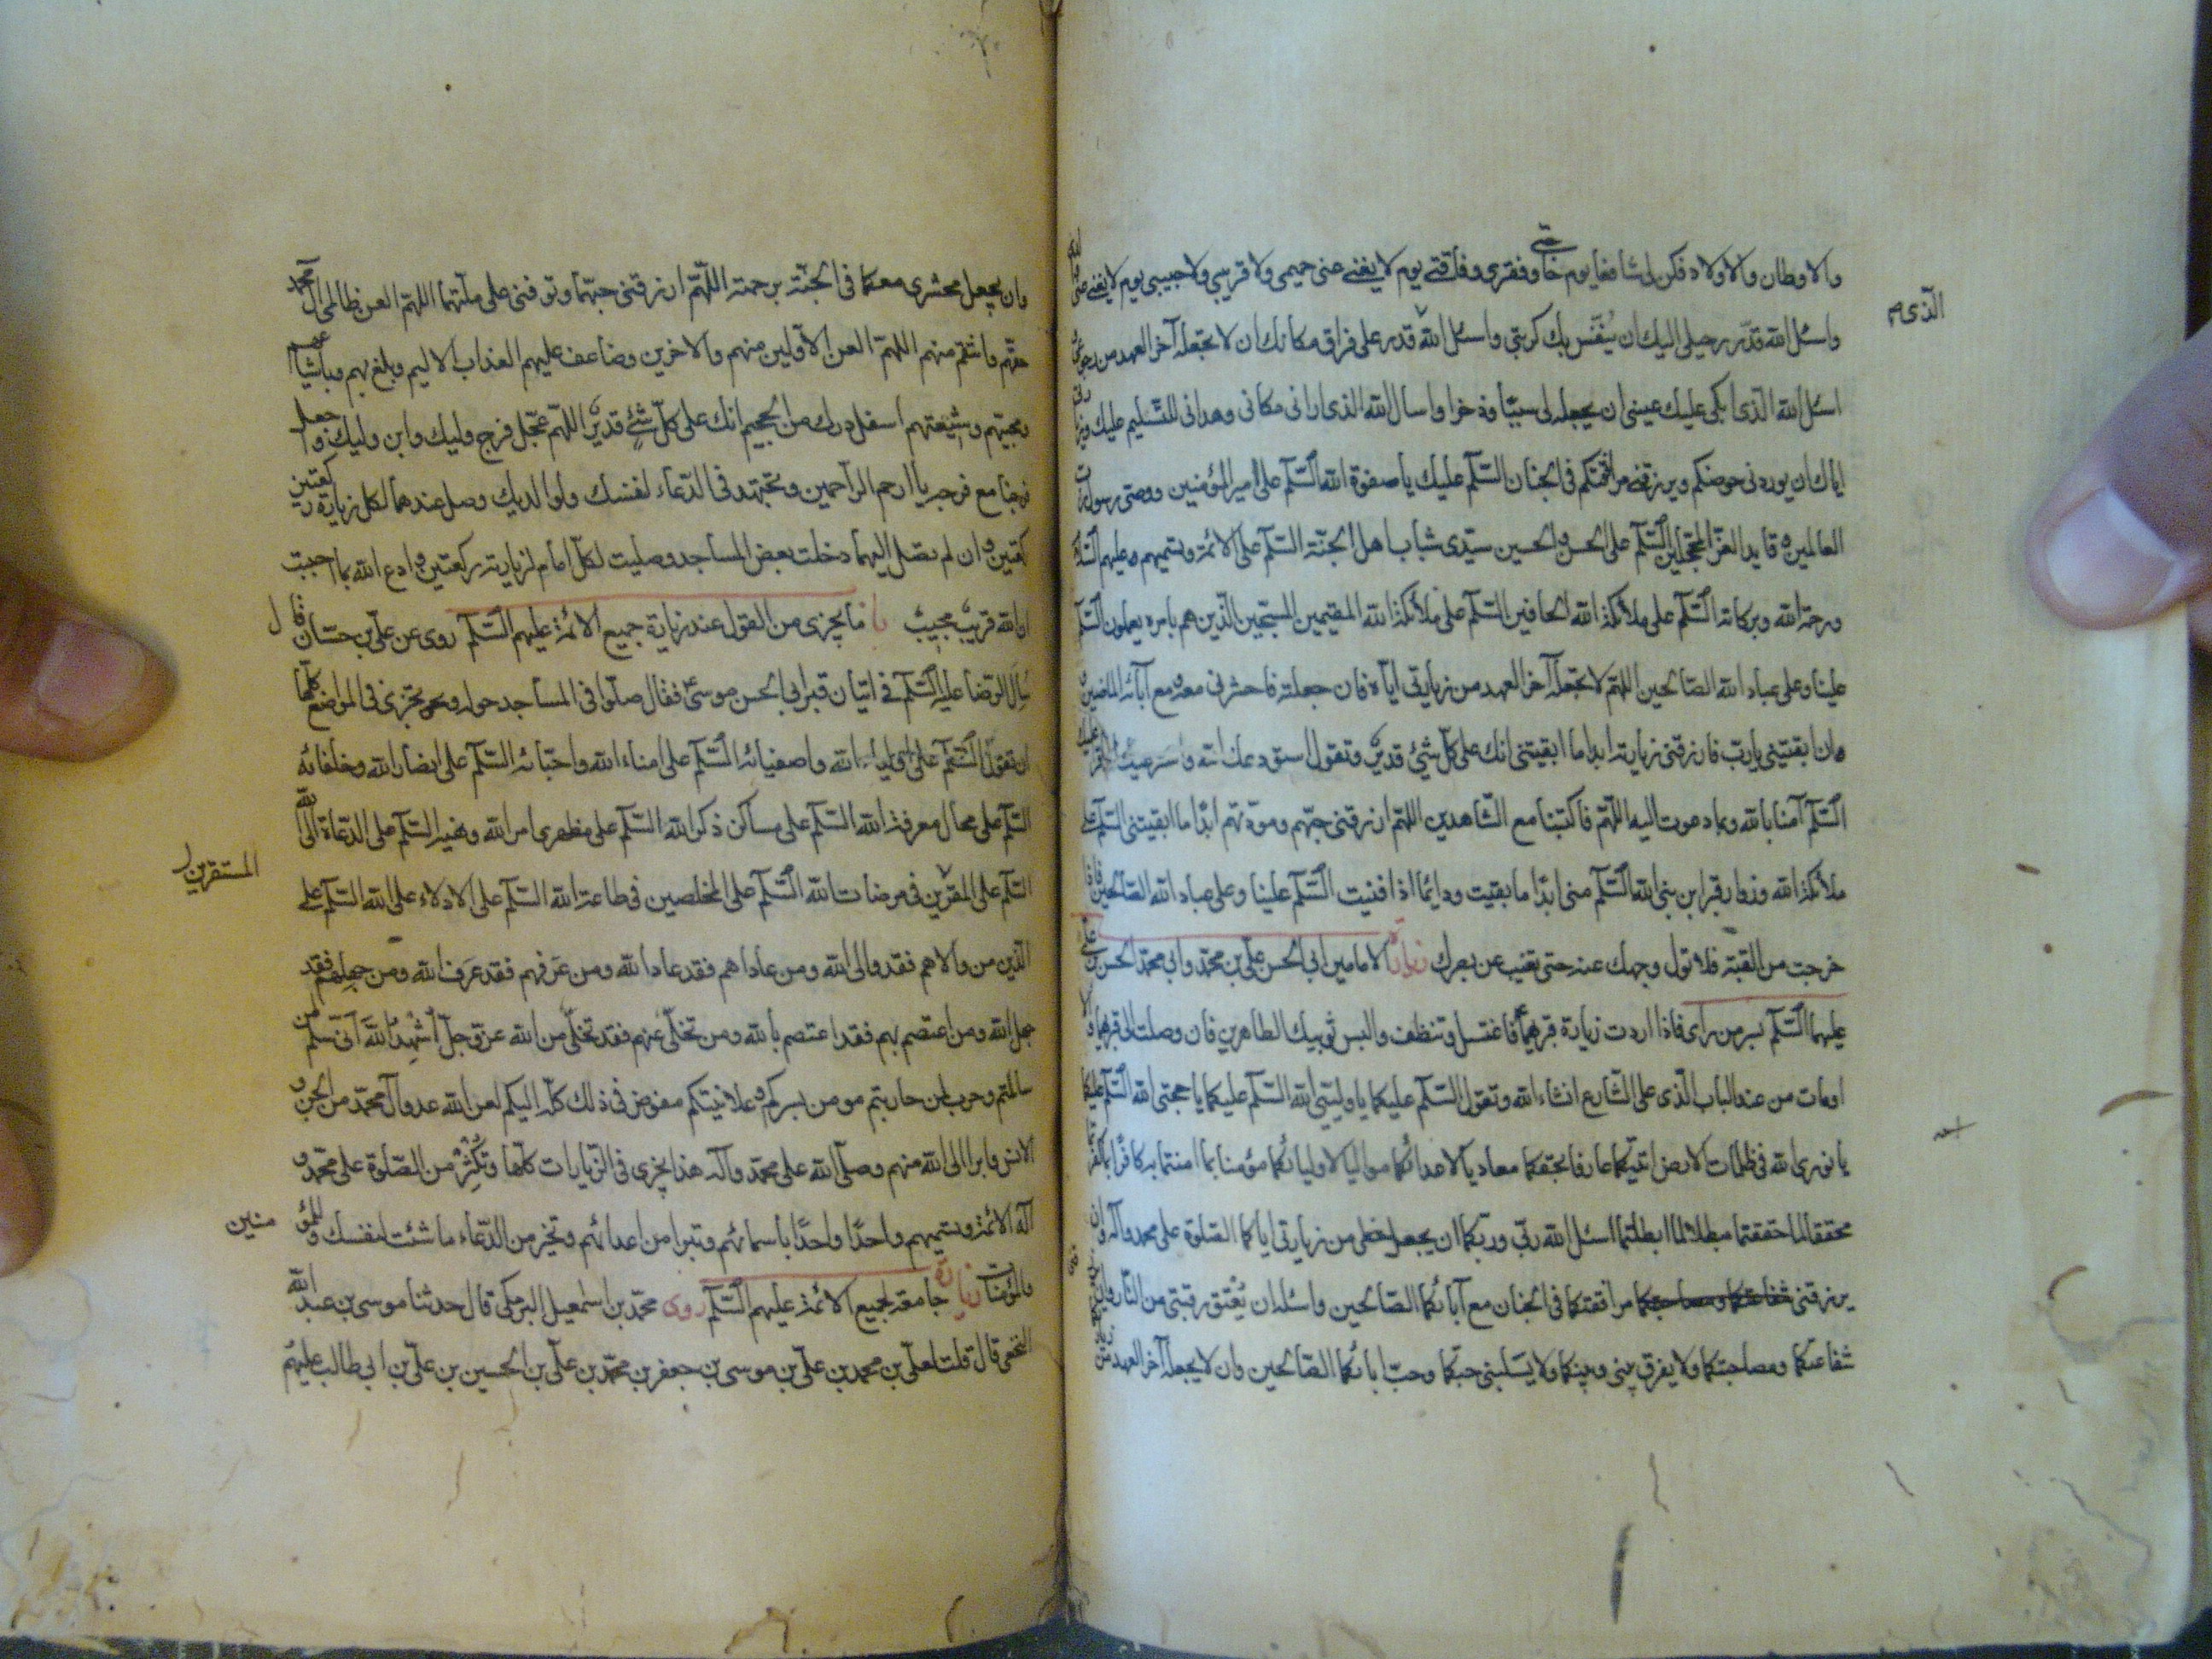 والاوطان والاولاد فكن لى شافعا يوم حاجتى وفقرى وفاقتى يوم لا يغنى عنى حميمى ولا قريبى ولا حبيبى يوم لا يغنى عنى
الذى م
واسئل الله قدر رحيلى اليك ان ينفس بك كربتى واسئل الله قدر على فراق مكانك ان لا تجعله آخر العهد من
اسئل الله الذى ابكى عليك عينى ان يجعله لى سببا وذخرا واسال الله الذى ارانى مكانى وهدانى للتسليم عليك
اياك ان يوردنى حوضكم ويرزقنى مرافقتكم فى الجنان السلم عليك يا صفوة الله السلم على امير المؤمنين ووصى رسول رب
العالمين و قايد الغر المحجلين السلم على الحسن والحسين سيدى شباب اهل الجنة السلم على الائمة وتسميهم عليهم السلم
ورحمة الله وبركاته السلم على ملائكة الله الحافين السلم على ملائكة الله المقيمين المسبحين الذين هم بامره يعملون السلم
علينا وعلى عباد الله الصالحين اللهم لا تجعله آخر العهد من زيارتى اياه فان جعلته فاحشرنى معه مع آبائه الماضين
وان ابقيتنى يا رب فارزقنى زيارته ابدا ما ابقيتنى انك على كل شئ قدير وتقول استودعك الله واسترعيك واقرأ عليك
السلم آمنا بالله وبما دعوت اليه اللهم فاكتبنا مع الشاهدين اللهم ارزقنى حبهم ومودتهم ابدا ما ابقيتنى السلم على
ملائكة الله وزوار قبر ابن نبى الله السلم منى ابدا ما بقيت ودايما اذا فنيت السلم علينا وعلى عباد الله الصالحين فاذا
خرجت من القبة فلا تول وجهك عنه حتى تغيب عن بصرك زيارة الامامين ابى الحسن على بن محمد وابى محمد الحسن بن على
عليهما السلم بسر من راى فاذا اردت زيارة قبريهما فاغتسل وتنظف والبس ثوبيك الطاهرين فان وصلت الى قبريهما والا
اومات من عند الباب الذى على الشارع انشاء الله وتقول السلم عليكما يا وليى الله السلم عليكما يا حجتى الله السلم عليكما
يا نورى الله فى ظلمات الارض اتيتكما عارفا بحقكما معاديا لاعدائكما مواليا لاوليائكما مؤمنا بما امنتما به كافرا بما كفرتما
محققا لما حققتما مبطلا لما ابطلتما اسئل الله ربى وربكما ان يجعل حظى من زيارتى اياكما الصلوة على محمد وآله وان
يرزقنى شفاعتكما ومصاحبتكما مرافقتكما فى الجنان مع آبائكما الصالحين واسئله ان يعتق رقبتى من النار وان يرزقنى
شفاعتكما ومصاحبتكما ولا يفرق بينى وبينكما ولا يسلبنى حبكما وحب ابائكما الصالحين وان لا يجعله آخر العهد من
وان يجعل محشرى معكما فى الجنة برحمته اللهم ارزقنى حبهما وتوفنى على ملتهما اللهم العن ظالمى آل محمد
حقهم وانتقم منهم اللهم العن الاولين منهم والاخرين وضاعف عليهم العذاب الاليم وبلغ بهم وباشياعهم
ومحبيهم وشيعتهم اسفل درك من الجحيم انك على كل شئ قدير اللهم عجل فرج وليك وابن وليك واجعل
فرجنا مع فرجه يا ارحم الراحمين وتجتهد فى الدعاء لنفسك ولوالديك وصل عندهما لكل زيارة ركعتين
ركعتين وان لم تصل اليهما دخلت بعض المساجد وصليت لكل امام لزيارته ركعتين وادع الله بما احببت
ان الله قريب مجيب ما يجزى من القول عند زيارة جميع الائمة عليهم السلم روى عن على بن حسان قال
سئل الرضا عليه السلم فى اتيان قبر ابى الحسن موسى فقال صلوا فى المساجد حوله ويجزى فى المواضع كلها
ان تقول السلم على اولياء الله واصفيائه السلم على امناء الله واحبائه السلم على انصار الله وخلفائه
السلم على محال معرفة الله السلم على مساكن ذكر الله السلم على مظهرى امر الله ونهيه السلم على الدعاة الى الله
المستقرين ل
السلم على المقربين فى مرضات الله السلم على المخلصين فى طاعة الله السلم على الادلاء على الله السلم على
الذين من والاهم فقد والى الله ومن عاداهم فقد عادا الله ومن عرفهم فقد عرف الله ومن جهلهم فقد
جهل الله ومن اعتصم بهم فقد اعتصم بالله ومن تخلى عنهم فقد تخلى من الله عز وجل اشهد الله انى سلم لمن
سالمتم وحرب لمن حاربتم مومن بسركم وعلانيتكم مفوض فى ذلك كله اليكم لعن الله عدو آل محمد من الجن و
الانس وابرا الى الله منهم وصلى الله على محمد وآله هذا يجزى فى الزيارات كلها وتكثر من الصلوة على محمد و
آله الائمة وتسميهم واحدا واحدا باسمائهم وتبرا من اعدائهم وتخير من الدعاء ما شئت لنفسك وللمؤ
منين
والمؤمنات زيارة جامعة لجميع الائمة عليهم السلم روى محمد بن اسمعيل البرمكى قال حدثنا موسى بن عبد الله
النخعى قال قلت لعلى بن محمد بن على بن موسى بن جعفر بن محمد بن على بن الحسين بن على بن ابى طالب عليهم